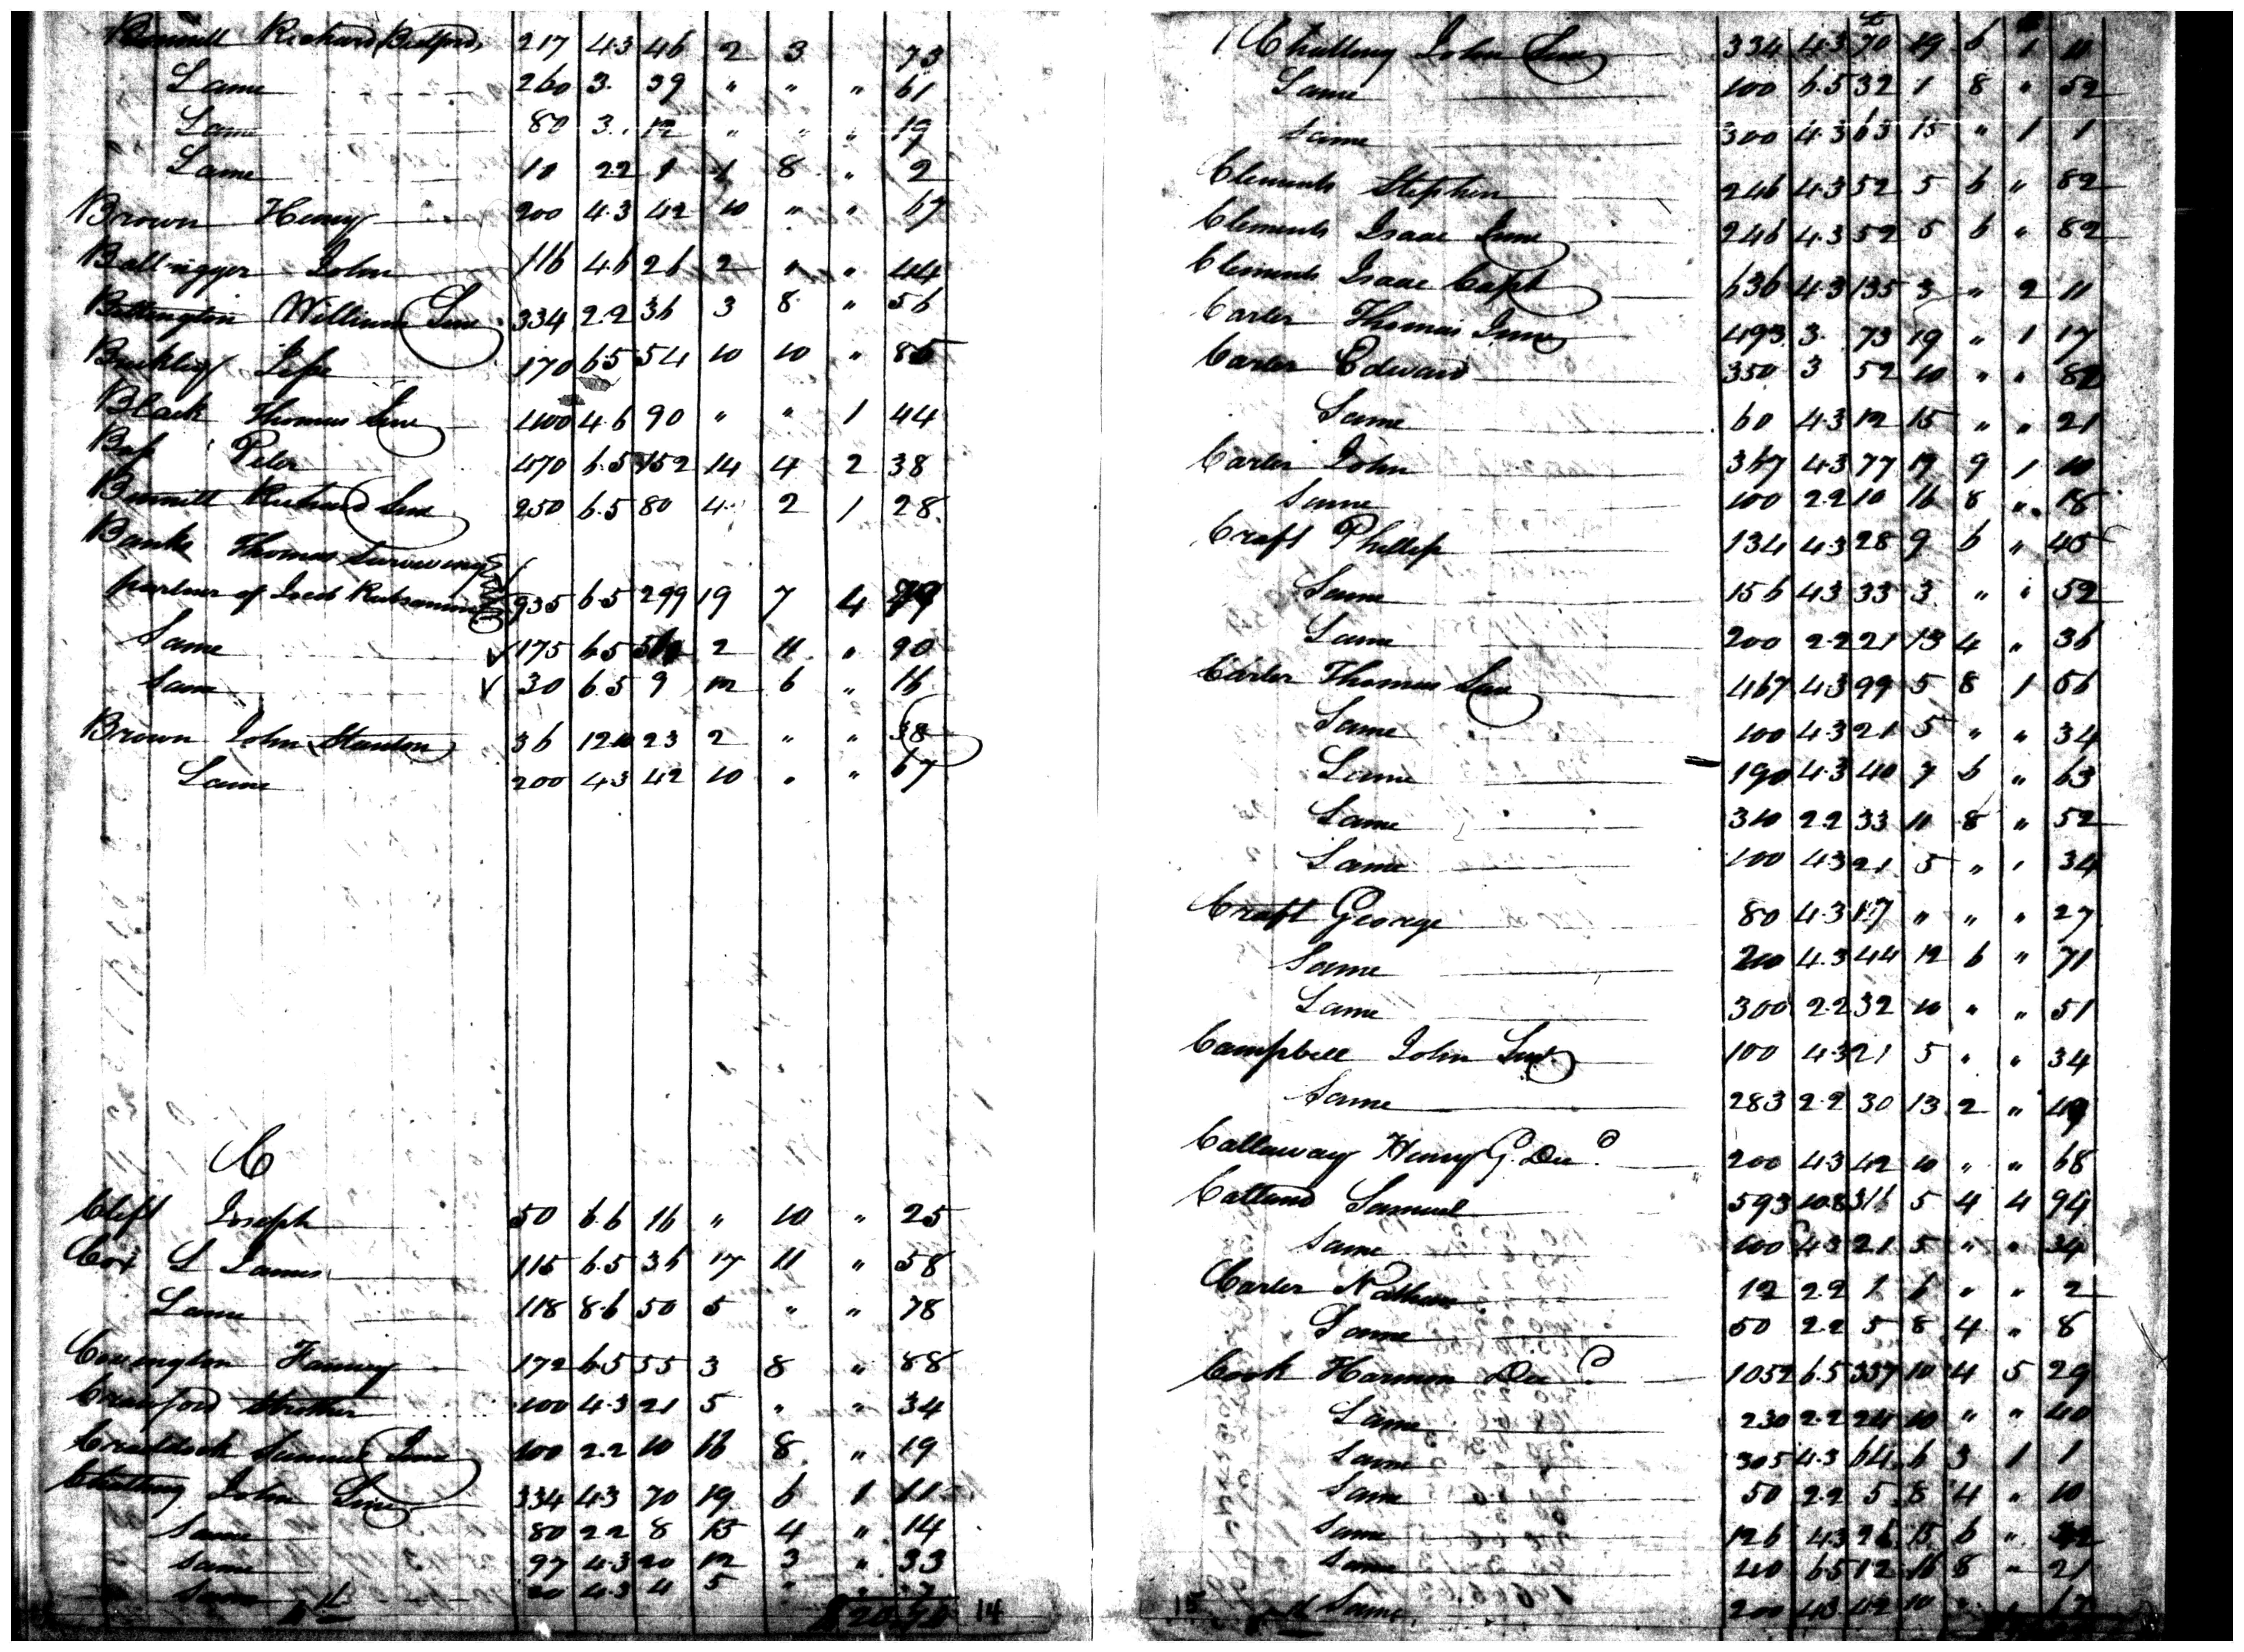 Bennett Richard (Bedford) 217 4.3 46 2 3 73
Same 260 3. 39 " " " 61
Same 80 3. 12 " " " 19
Same 10 2.2 1 1 8 " 2
Brown Henry 200 4.3 42 10 " " 67
John 116 4.6 26 2 " " 44
William Senr 334 2.2 36 3 8 " 56
170 6.5 54 10 10 "
Black Thomas Senr 400 4.6 90 " " 1 44
Peter 470 6.5 152 14 4 2 38
Bennett Richard Senr 250 6.5 80 4 2 1 28
Banks Thomas surviving
partner of 935 6.5 299 19 7 4
Same 175 6.5 2 11 " 90
Same 30 6.5 9 12 6 " 16
Brown John (Stanton) 36 23 2 " " 38
Same 200 4.3 42 10 " " 67
C
Clift Joseph 50 6.6 16 " 10 " 25
Cox S James 115 6.5 36 17 11 " 58
Same 118 8.6 50 5 " " 78
Covington Fanney 172 6.5 55 3 8 " 88
Crawford Strother 100 4.3 21 5 " " 34
Craddock Samuel Junr 100 2.2 10 16 8 " 19
John Junr 334 4.3 70 19 6 1 11
Same 80 2.2 8 13 4 " 14
Same 97 4.3 20 12 3 " 33
Same 20 4.3 4 5 "
14
John Senr 334 4.3 70 19 6 1 11
Same 100 6.5 32 1 8 " 52
Same 300 4.3 63 15 " 1 1
Clements Stephen 246 4.3 52 5 6 " 82
Clements Isaac Junr 246 4.3 52 5 6 " 82
Clements Isaac Capt 636 4.3 135 3 " 2 11
Carter Thomas Junr 493 3. 73 19 " 1 17
Carter Edward 350 3 52 10 " " 82
Same 60 4.3 12 15 " " 21
Carter John 367 4.3 77 19 9 1 10
Same 100 2.2 10 16 8 " 18
Craft Phillip 134 4.3 28 9 6 " 45
Same 156 4.3 33 3 " " 52
Same 200 2.2 21 13 4 " 36
Carter Thomas Senr 467 4.3 99 5 8 1 56
Same 100 4.3 21 5 " " 34
Same 190 4.3 40 7 6 " 63
Same 310 2.2 33 11 8 " 52
Same 100 4.3 21 5 " " 34
Craft George 80 4.3 17 " " " 27
Same 4.3 44 12 6 " 71
Same 300 2.2 32 10 " " 51
Campbell John Senr 100 4.3 21 5 " " 34
Same 283 2.2 30 13 2 " 49
Callaway Henry G. Decd 200 4.3 42 10 " " 68
Calland Samuel 593 10.8 316 5 4 4 94
Same 100 4.3 21 5 " " 34
Carter Nathan 12 2.2 1 6 " " 2
Same 50 2.2 5 8 4 " 8
Cook Harmon Decd 1052 6.5 337 10 4 5 29
Same 230 2.2 24 10 " " 40
Same 305 4.3 64 6 3 1 1
Same 50 2.2 5 8 4 " 10
Same 126 4.3 26 15 6 "
Same 40 6.5 12 16 8 " 21
15
Same 200 4.3 42 10